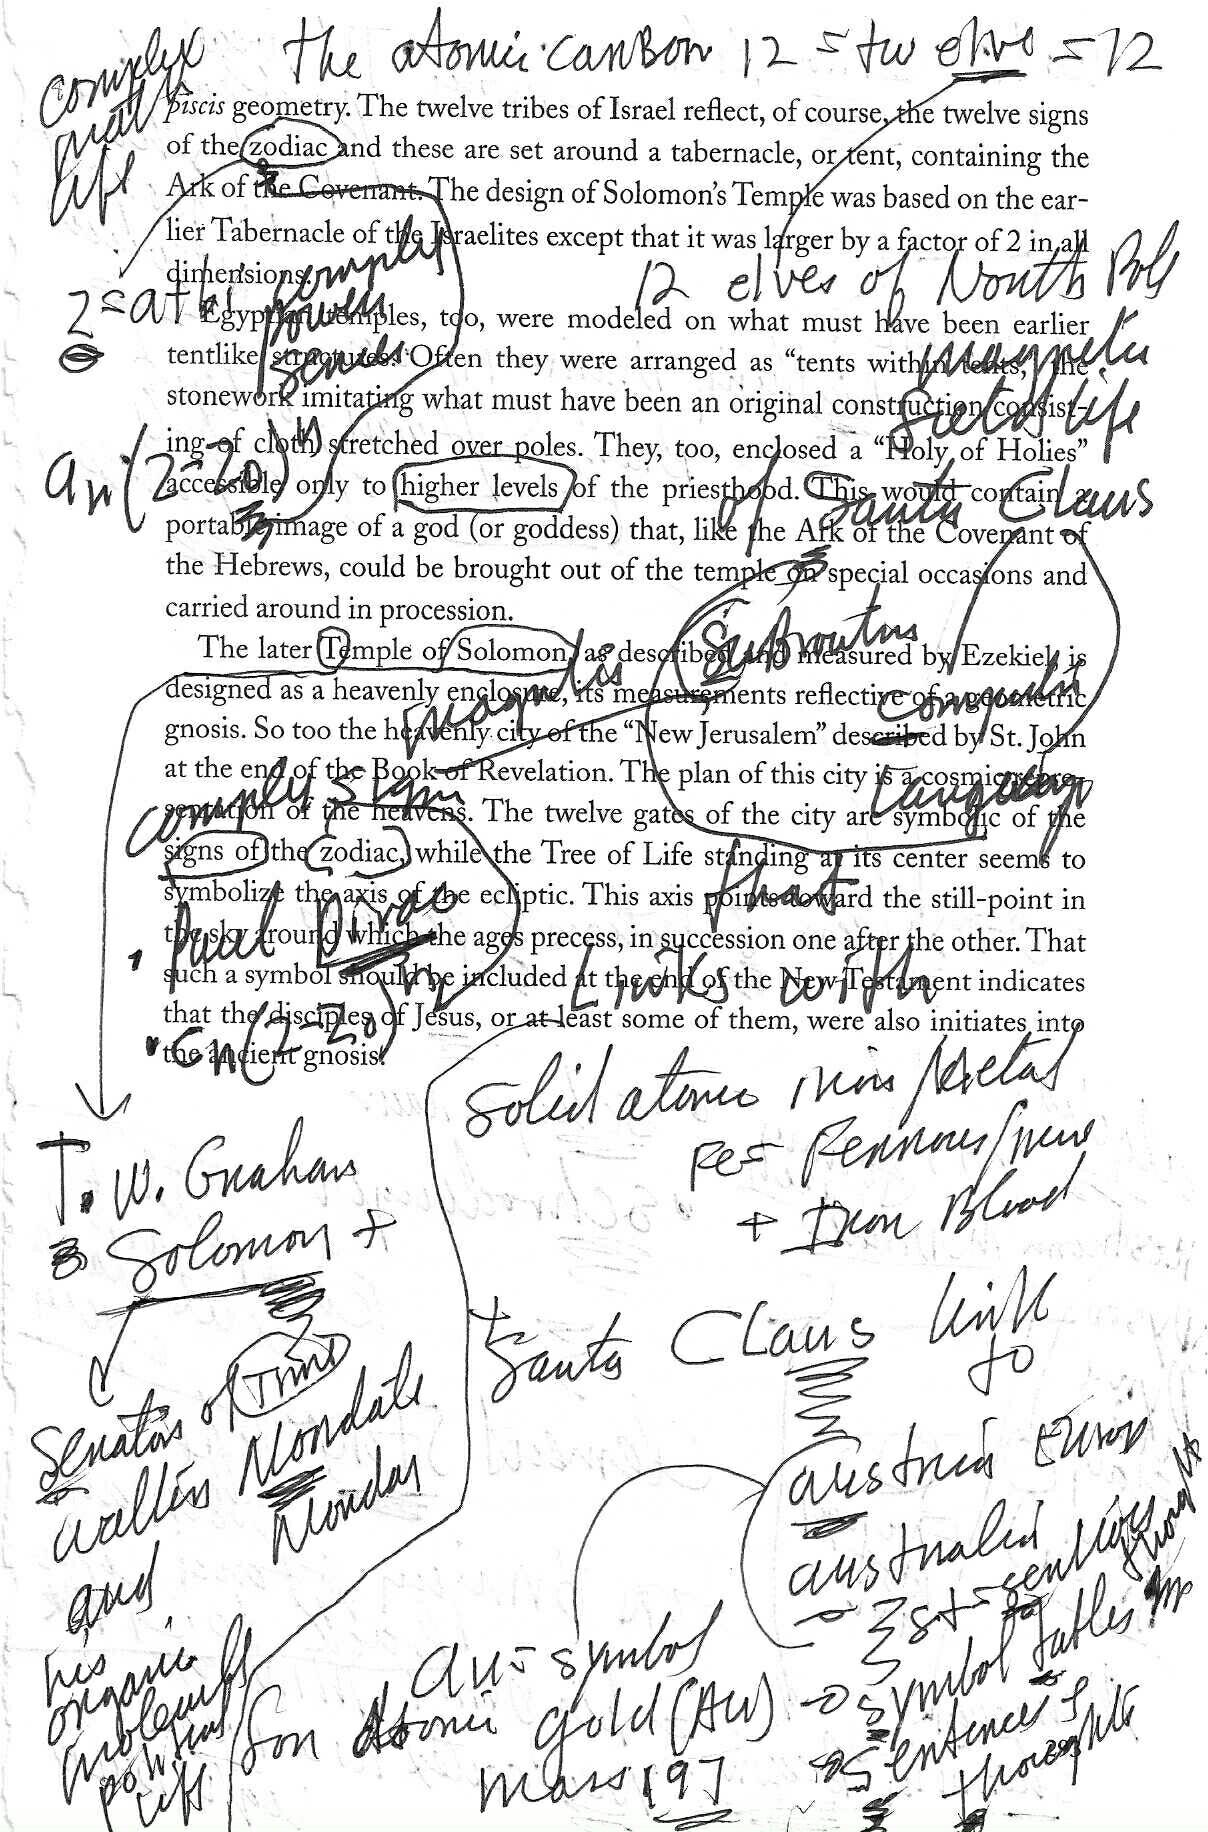 the atomic carbon 12 = twelve = 12
complex
math
life
piscis geometry. The twelve tribes of Israel reflect, of course, the twelve signs
of the zodiac and these are set around a tabernacle, or tent, containing the
Ark of the Covenant. The design of Solomon's Temple was based on the ear-
lier Tabernacle of the Israelites except that it was larger by a factor of 2 in all
dimensions.
12 elves of North Pole
complex
power
series
Egyptian temples, too, were modeled on what must have been earlier
tentlike structures. Often they were arranged as "tents within tents," the
magnetic
stonework imitating what must have been an original construction consist-
fields life
ing of cloth stretched over poles. They, too, enclosed a "Holy of Holies"
accessible only to higher levels of the priesthood. This would contain a
of Santa Claus
portable image of a god (or goddess) that, like the Ark of the Covenant of
the Hebrews, could be brought out of the temple on special occasions and
carried around in procession.
The later Temple of Solomon, as described and measured by Ezekiel, is
designed as a heavenly enclosure, its measurements reflective of a geometric
gnosis. So too the heavenly city of the "New Jerusalem" described by St. John
at the end of the Book of Revelation. The plan of this city is a cosmic repre-
sentation of the heavens. The twelve gates of the city are symbolic of the
signs of the zodiac, while the Tree of Life standing at its center seems to
symbolize the axis of the ecliptic. This axis points toward the still-point in
the sky around which the ages precess, in succession one after the other. That
such a symbol should be included at the end of the New Testament indicates
that the disciples of Jesus, or at least some of them, were also initiates into
the ancient gnosis.
computer
language
that
Links with
Paul Dirac
solid atomic iron metal
Fe = Ferrous/
+ Iron Blood
T. W. Graham
Solomon +
Santa Claus link
to
Senators of Time
Walter Mondale
Monday
and
his
organic
molecules
political
life
austria Europe
australia
symbol tables
sentences
thoughts
au = symbol
for atomic gold (Au)
mass 197